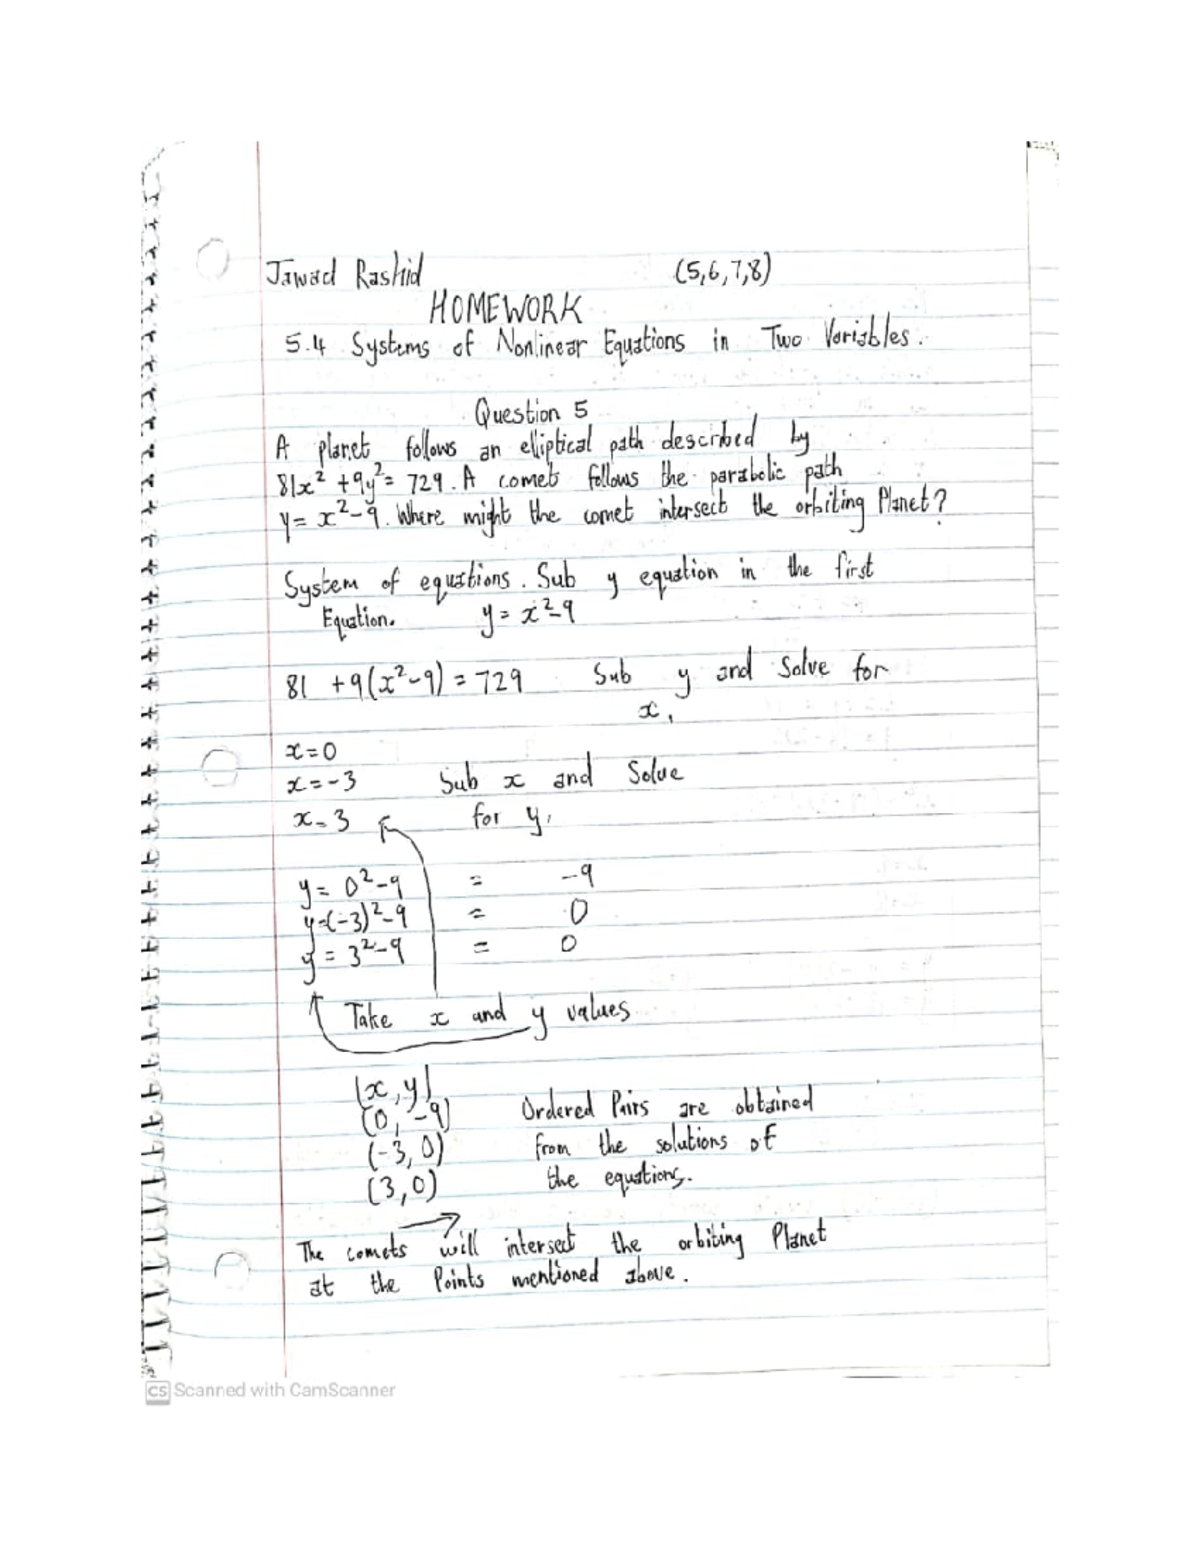 Jawad Rashid (5,6,7,8)
HOMEWORK
5.4 Systems of Nonlinear Equations in Two Variables.
Question 5
A planet follows an elliptical path described by
81x² + 9y² = 729. A comets follows the parabolic path
y = x² - 9. Where might the comet intersect the orbiting Planet?
System of equations. Sub y equation in the first
Equation. y = x² - 9
81 + 9(x² - 9) = 729 Sub y and Solve for
x,
x = 0
x = -3 Sub x and Solve
x = 3 for y,
y = 0² - 9 = -9
y = (-3)² - 9 = 0
y = 3² - 9 = 0
Take x and y values
(x, y)
(0, -9) Ordered Pairs are obtained
(-3, 0) from the solutions of
(3, 0) the equations.
The comets will intersect the orbiting Planet
at the Points mentioned above.
CS Scanned with CamScanner